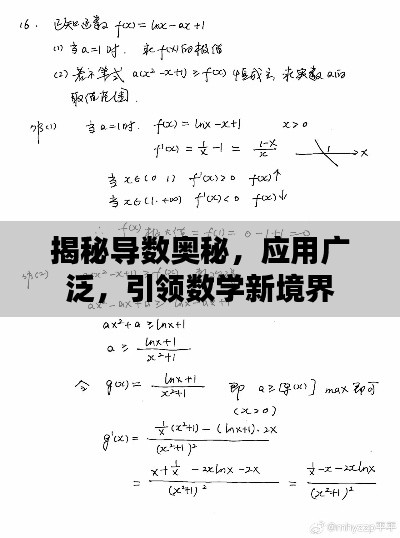 16. 已知函数 f(x) = lnx - ax + 1
(1) 当 a=1 时, 求 f(x) 的极值
(2) 若不等式 a(x²-x+1) ≥ f(x) 恒成立 求实数 a 的
取值范围.
当 a=1 时. f(x) = lnx - x + 1 x>0
f'(x) = 1/x - 1 = (1-x)/x → x
当 x∈(0 1) f'(x)>0 f(x)↑
当 x∈(1, +∞) f'(x)<0 f(x)↓
揭秘导数奥秘，应用广
泛，引领数学新境界
ax² + a ≥ lnx + 1
a ≥ (lnx+1)/(x²+1)
令 g(x) = (lnx+1)/(x²+1) 即 a ≥ [g(x)] max 即可
(x>0)
g'(x) = (1/x (x²+1) - (lnx+1)·2x)/(x²+1)²
= (x + 1/x - 2xlnx - 2x)/(x²+1)² = (1/x - x - 2xlnx)/(x²+1)²